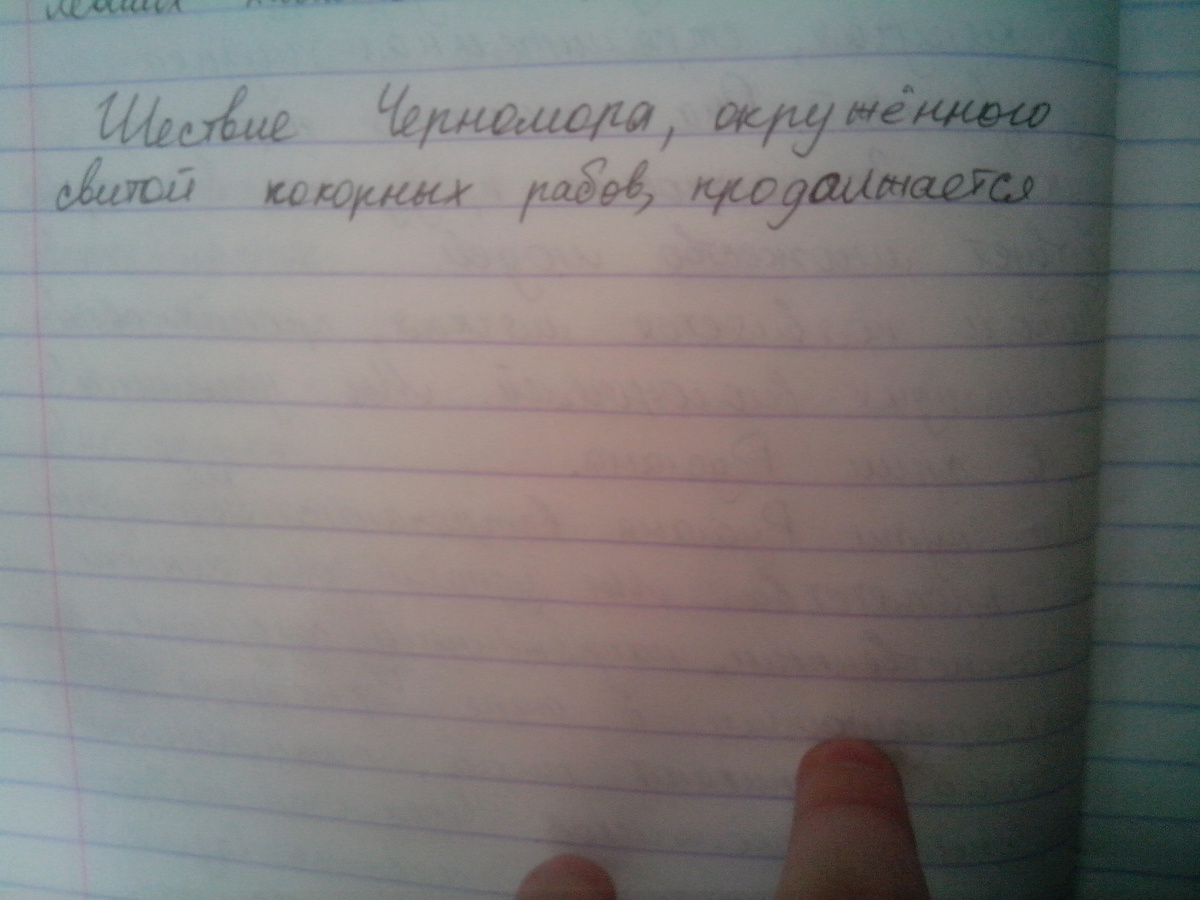 Шествие Черномора, окружённого
свитой покорных рабов, продолжается